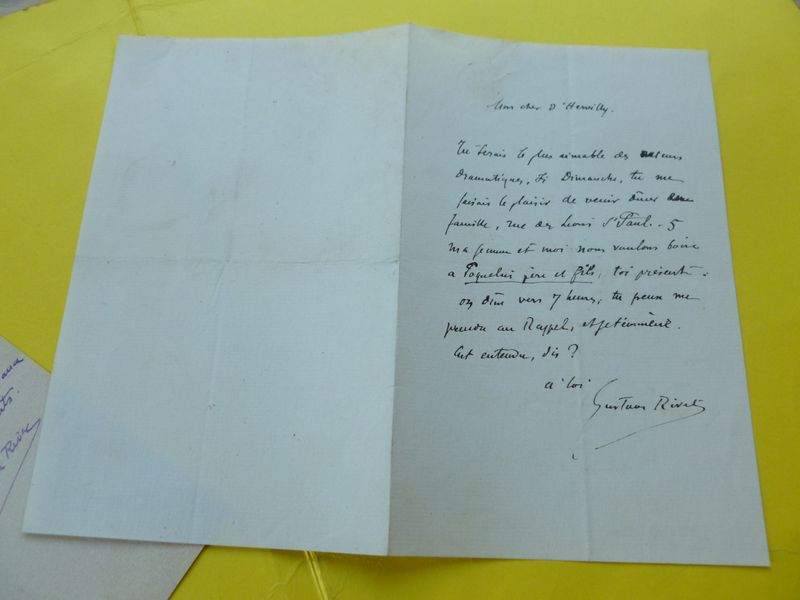 Mon cher D'Hervilly.
Tu serais le plus aimable des auteurs
dramatiques, si Dimanche, tu me
faisais le plaisir de venir dîner en
famille, rue des Lions St Paul. - 5
Ma femme et moi nous voulons boire
à Poquelin père et fils, toi présent -
on dîne vers 7 heures, tu peux me
prendre au Rappel, et je t'emmène.
C'est entendu, dis ?
à toi
Gustave Rivet